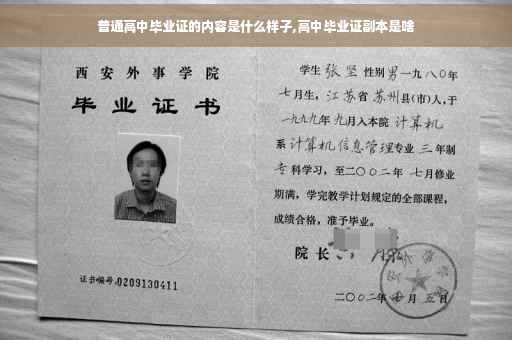 普通高中毕业证的内容是什么样子,高中毕业证副本是啥
西安外事学院
毕业证书
证书编号:0209130411
学生张坚性别男一九八〇年
七月生,江苏省苏州县(市)人,于
一九九九年九月入本院计算机
系计算机信息管理专业三年制
专科学习,至二〇〇二年七月修业
期满,学完教学计划规定的全部课程,
成绩合格,准予毕业。
院长
二〇〇二年 月五日